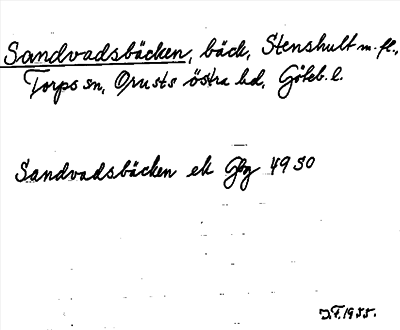 Sandvadsbäcken, bäck, Stenshult m. fl.,
Torps sn, Orusts östra hd, Göteb. l.
Sandvadsbäcken ek Gbg 49 SO
J.F. 1955.